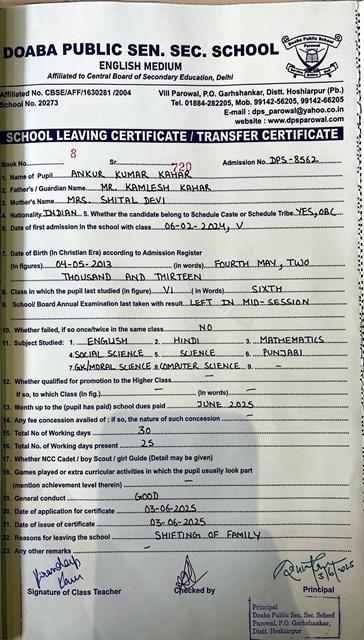 DOABA PUBLIC SEN. SEC. SCHOOL
ENGLISH MEDIUM
Affiliated to Central Board of Secondary Education, Delhi
Affiliated No. CBSE/AFF/1630281 /2004
School No. 20273
Vill Parowal, P.O. Garhshankar, Distt. Hoshiarpur (Pb.)
Tel. 01884-282205, Mob. 99142-56205, 99142-66205
E-mail : dps_parowal@yahoo.co.in
website : www.dpsparowal.com
SCHOOL LEAVING CERTIFICATE / TRANSFER CERTIFICATE
Book No. 8 Sr. 720 Admission No. DPS-8562
1. Name of Pupil ANKUR KUMAR KAHAR
2. Father's/Guardian Name MR. KAMLESH KAHAR
3. Mother's Name MRS. SHITAL DEVI
4. Nationality INDIAN 5. Whether the candidate belong to Schedule Caste or Schedule Tribe YES, OBC
6. Date of first admission in the school with class 06-02-2024, V
7. Date of Birth (In Christian Era) according to Admission Register
(In figures) 04-05-2013 (in words) FOURTH MAY, TWO
THOUSAND AND THIRTEEN
8. Class in which the pupil last studied (in figure) VI (In Words) SIXTH
9. School/ Board Annual Examination last taken with result LEFT IN MID-SESSION
10. Whether failed, if so once/twice in the same class NO
11. Subject Studied: 1. ENGLISH 2. HINDI 3. MATHEMATICS
4. SOCIAL SCIENCE 5. SCIENCE 6. PUNJABI
7. GK/MORAL SCIENCE 8. COMPUTER SCIENCE 9. -
12. Whether qualified for promotion to the Higher Class -
If so, to which Class (In fig.) - (In Words) -
13. Month up to the (pupil has paid) school dues paid JUNE 2025
14. Any fee concession availed of : if so, the nature of such concession -
15. Total No of Working days 30
16. Total No. of Working days present 25
17. Whether NCC Cadet / boy Scout / girl Guide (Detail may be given)
18. Games played or extra curricular activities in which the pupil usually look part
(mention achievement level therein) -
19. General conduct GOOD
20. Date of application for certificate 03-06-2025
21. Date of issue of certificate 03-06-2025
22. Reasons for leaving the school SHIFTING OF FAMILY
23. Any other remarks -
Signature of Class Teacher
Checked by
Principal
Principal
Doaba Public Sen. Sec. School
Parowal, P.O. Garhshankar,
Distt. Hoshiarpur